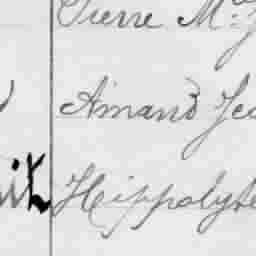 Pierre M.
Amand Jea
Hippolyte